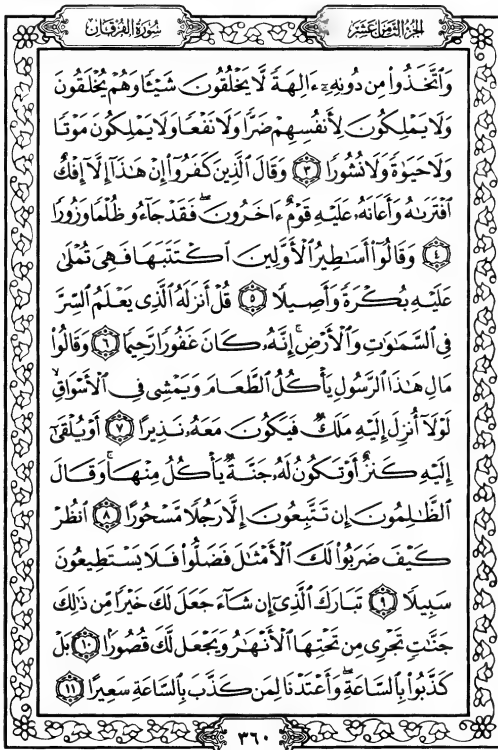 سُورَةُ الفُرْقَان
الجُزءُ الثَّامِنُ عَشَرَ
وَٱتَّخَذُوا۟ مِن دُونِهِۦٓ ءَالِهَةً لَّا يَخْلُقُونَ شَيْـًٔا وَهُمْ يُخْلَقُونَ
وَلَا يَمْلِكُونَ لِأَنفُسِهِمْ ضَرًّا وَلَا نَفْعًا وَلَا يَمْلِكُونَ مَوْتًا
وَلَا حَيَوٰةً وَلَا نُشُورًا ٣ وَقَالَ ٱلَّذِينَ كَفَرُوٓا۟ إِنْ هَـٰذَآ إِلَّآ إِفْكٌ
ٱفْتَرَىٰهُ وَأَعَانَهُۥ عَلَيْهِ قَوْمٌ ءَاخَرُونَ ۖ فَقَدْ جَآءُو ظُلْمًا وَزُورًا
٤ وَقَالُوٓا۟ أَسَـٰطِيرُ ٱلْأَوَّلِينَ ٱكْتَتَبَهَا فَهِىَ تُمْلَىٰ
عَلَيْهِ بُكْرَةً وَأَصِيلًا ٥ قُلْ أَنزَلَهُ ٱلَّذِى يَعْلَمُ ٱلسِّرَّ
فِى ٱلسَّمَـٰوَٰتِ وَٱلْأَرْضِ ۚ إِنَّهُۥ كَانَ غَفُورًا رَّحِيمًا ٦ وَقَالُوا۟
مَالِ هَـٰذَا ٱلرَّسُولِ يَأْكُلُ ٱلطَّعَامَ وَيَمْشِى فِى ٱلْأَسْوَاقِ ۙ
لَوْلَآ أُنزِلَ إِلَيْهِ مَلَكٌ فَيَكُونَ مَعَهُۥ نَذِيرًا ٧ أَوْ يُلْقَىٰٓ
إِلَيْهِ كَنزٌ أَوْ تَكُونُ لَهُۥ جَنَّةٌ يَأْكُلُ مِنْهَا ۚ وَقَالَ
ٱلظَّـٰلِمُونَ إِن تَتَّبِعُونَ إِلَّا رَجُلًا مَّسْحُورًا ٨ ٱنظُرْ
كَيْفَ ضَرَبُوا۟ لَكَ ٱلْأَمْثَـٰلَ فَضَلُّوا۟ فَلَا يَسْتَطِيعُونَ
سَبِيلًا ٩ تَبَارَكَ ٱلَّذِىٓ إِن شَآءَ جَعَلَ لَكَ خَيْرًا مِّن ذَٰلِكَ
جَنَّـٰتٍ تَجْرِى مِن تَحْتِهَا ٱلْأَنْهَـٰرُ وَيَجْعَل لَّكَ قُصُورًۢا ١٠ بَلْ
كَذَّبُوا۟ بِٱلسَّاعَةِ ۖ وَأَعْتَدْنَا لِمَن كَذَّبَ بِٱلسَّاعَةِ سَعِيرًا ١١
٣٦٠